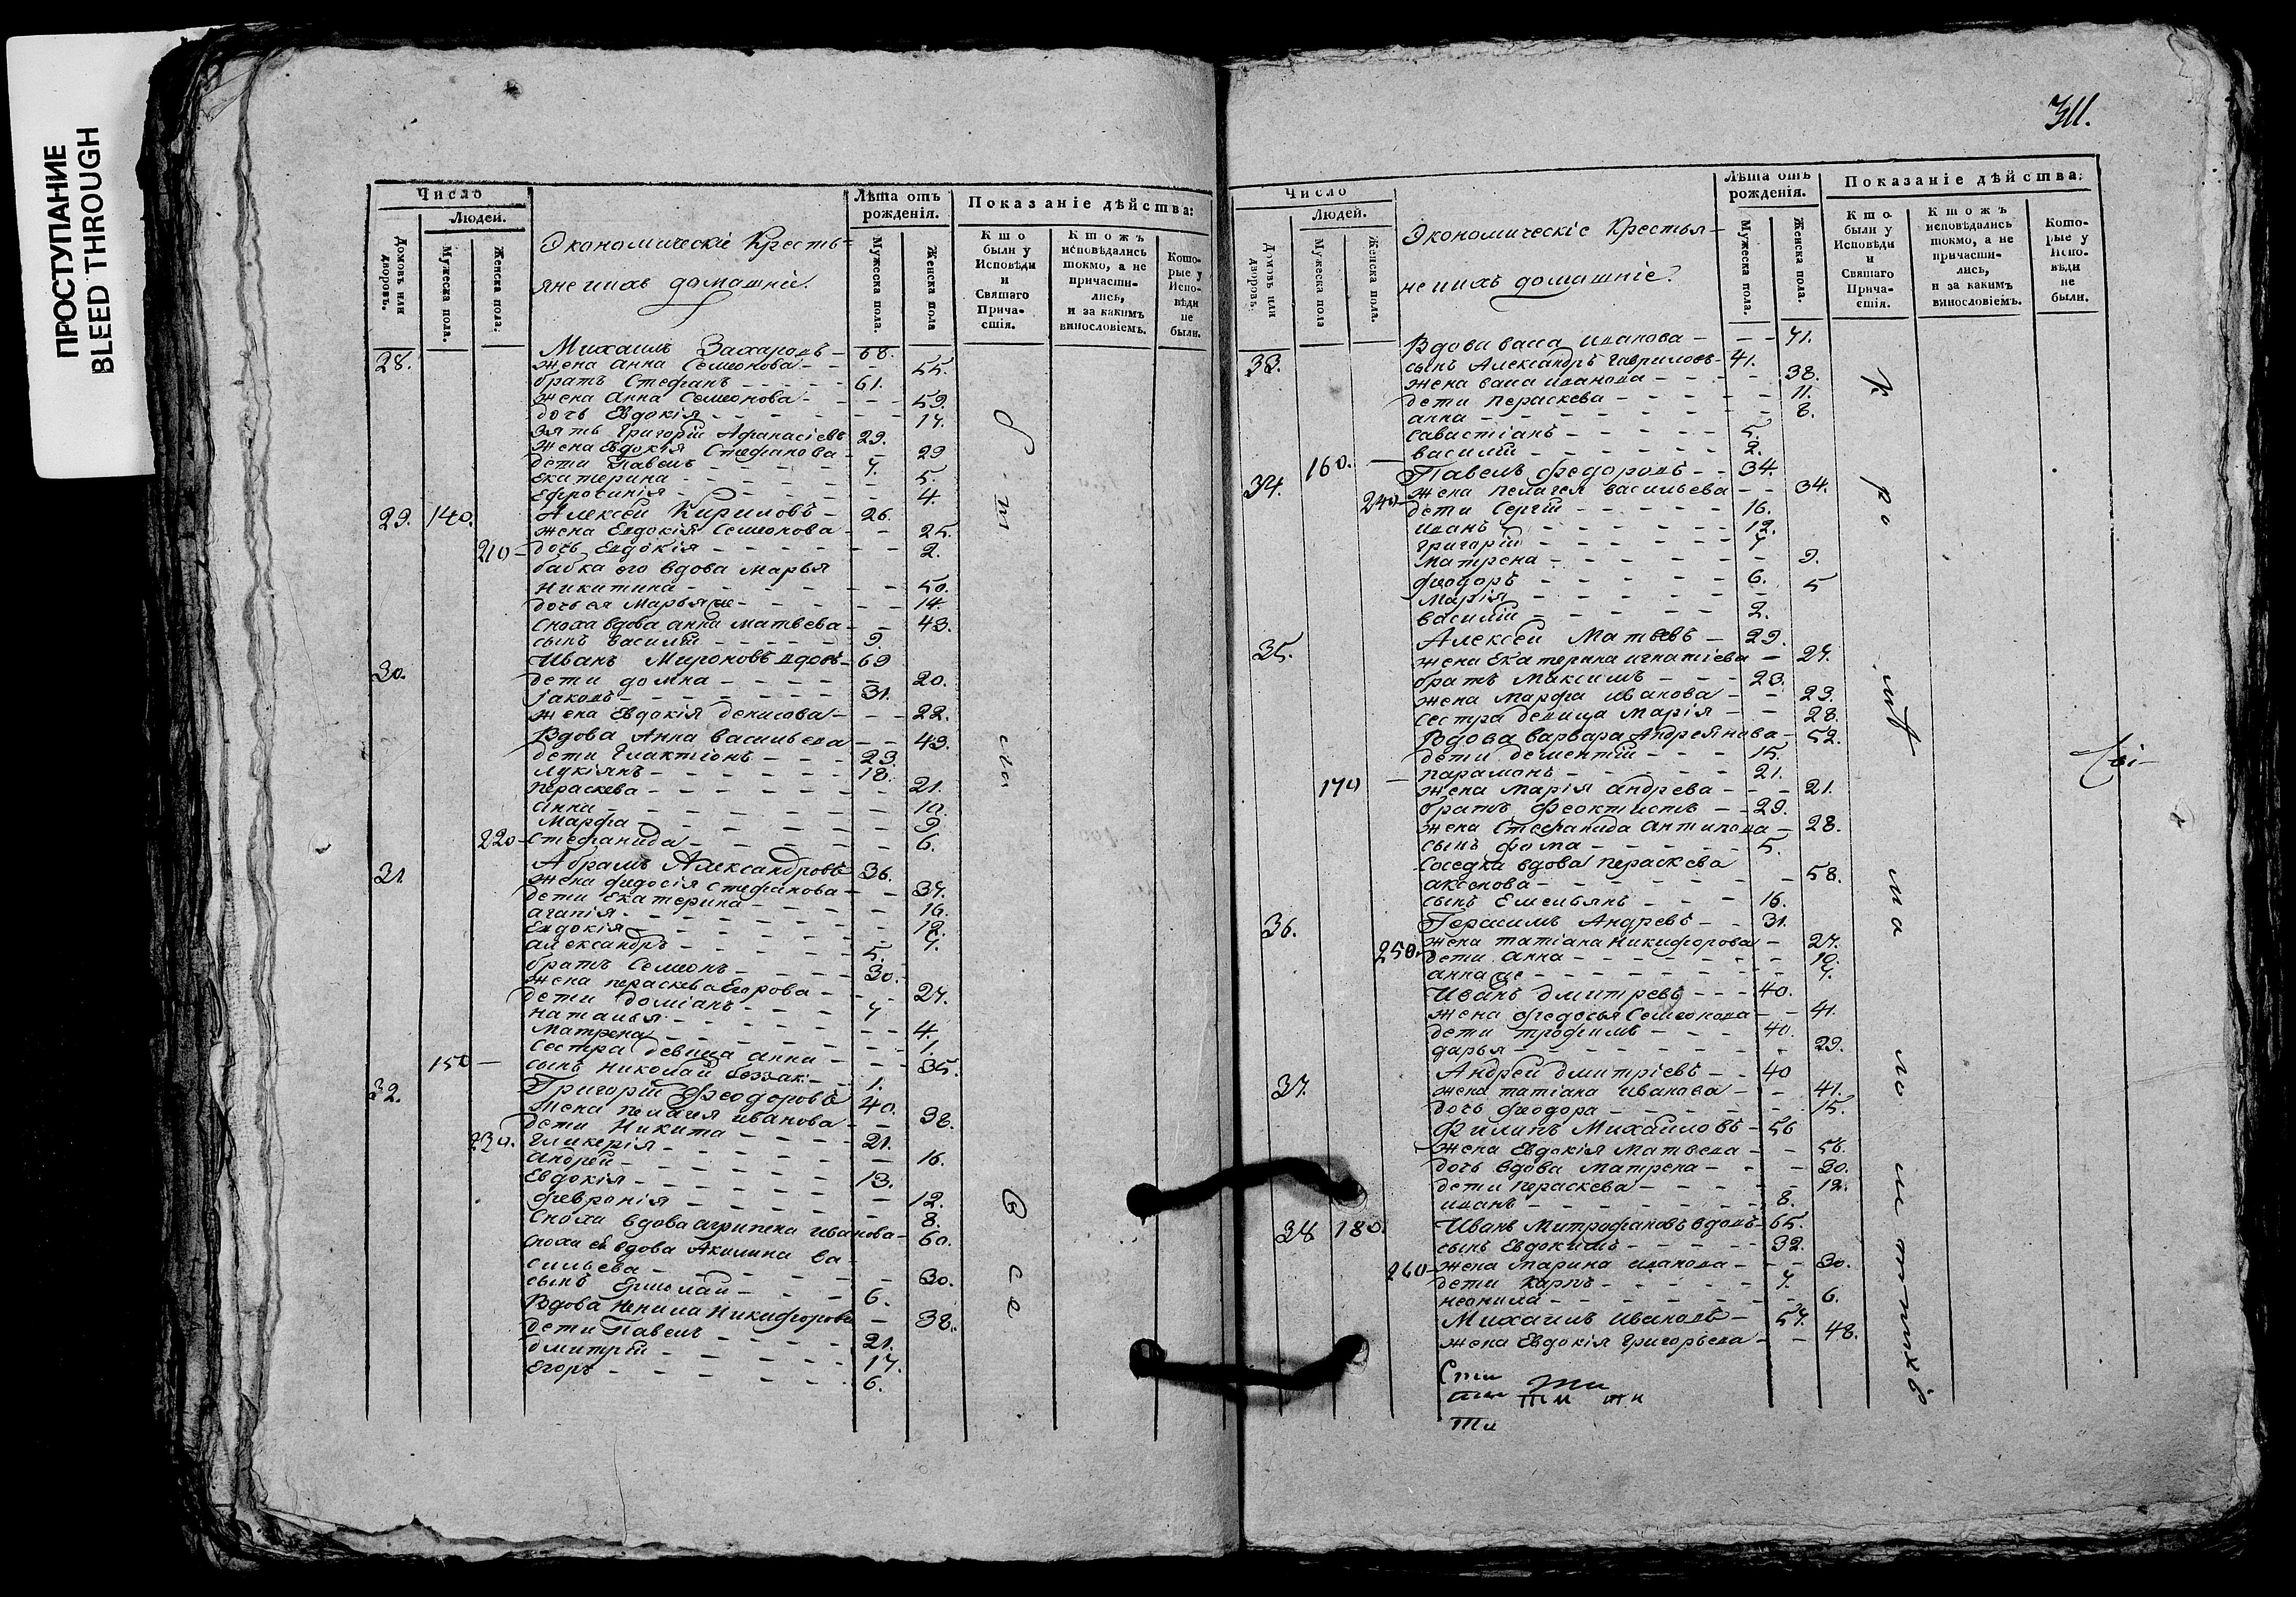 ПРОСТУПАНИЕ
BLEED THROUGH
Число
Людей.
Домовъ или дворовъ.
Мужеска пола.
Женска пола.
Экономическіе Кресть-
яне ихъ домашніе.
Лѣта отъ рожденія.
Мужеска пола.
Женска пола
Показаніе дѣйства:
Кто были у Исповѣди и Святаго Причастія.
Ктожъ исповѣдались токмо, а не причастились, и за какимъ винословіемъ.
Которые у Исповѣди не были.
28. Михаилъ Захаровъ 68.
жена Анна Семионова 55.
братъ Стефанъ 61.
жена Анна Семионова 59.
дочь Евдокія 17.
зять Григорій Афанасіевъ 29.
жена Евдокія Стефанова 29
дети Павелъ 7.
Екатерина 5.
Ефросинія 4.
29. 140. Алексей Кириловъ 26.
жена Евдокія Семионова 25.
210 дочь Евдокія 2.
бабка его вдова Марья
Никитина 50.
дочь ея Марья 14.
Сноха вдова анна матвеева 43.
сынъ василій 9.
30. Иванъ Мироновъ вдовъ 69
дети домна 20.
Іаковъ 31.
жена Евдокія денисова 22.
Вдова Анна васильева 49.
дети Галактіонъ 23.
лукіянъ 18.
пераскева 21.
Анна 10.
Марфа 9
220 стефанида 6.
31. Абрамъ Александровъ 36.
жена федосія стефанова 37.
дети Екатерина 16.
агапія 12.
Евдокія 7.
александръ 5.
братъ Семионъ 30.
жена пераскева Егорова 27.
дети доміанъ 7
наталья 4.
матрена 1.
сестра девица анна 35.
150 сынъ николай беззак: 1.
32. Григорій Феодоровъ 40.
жена пелагея иванова 38.
дети Никита 21.
230. Гликерія 16.
Андрей 13.
Евдокія 12.
февронія 8.
Сноха вдова агрипена иванова 60.
сноха ей вдова Акилина ва-
сильева 30.
сынъ Ермолай 6.
Вдова Ненила Никифорова 38.
дети Павелъ 21.
дмитрій 17.
Егоръ 6.
Всѣ
311.
Число
Людей.
Домовъ или дворовъ.
Мужеска пола
Женска пола.
Экономическіе Крестья-
не ихъ домашніе.
Лѣта отъ рожденія.
Мужеска пола.
Женска пола.
Показаніе дѣйства:
Кто были у Исповѣди и Святаго Причастія.
Ктожъ исповѣдались токмо, а не причастились, и за какимъ винословіемъ.
Которые у Исповѣди не были.
33. Вдова васа иванова 71.
сынъ Александръ Гавриловъ 41.
жена васа иванова 38.
дети пераскева 11.
анна 8.
савастіанъ 5.
160. василій 2.
34. Павелъ Федоровъ 34.
240 жена пелагея васильева 34.
дети Сергій 16.
иванъ 12.
григорій 7
матрена 9.
феодоръ 6.
марія 5
василій 2.
35. Алексей Матвеевъ 29.
жена Екатерина игнатіева 27.
братъ Максимъ 23.
жена Марфа иванова 23.
сестра девица Марія 28.
Вдова варвара Андреянова 52.
дети дементій 15.
170 парамонъ 21.
жена Марія андреева 21.
братъ Феоктистъ 29.
жена Стефанида Антипова 28.
сынъ фома 5.
соседка вдова пераскева
аксенова 58.
сынъ Емельянъ 16.
36. Герасимъ Андреевъ 31.
жена татіана Никифорова 27.
250. дети анна 10.
анна 7.
Иванъ дмитреевъ 40.
жена федосья Семионова 41.
дети трофимъ 40.
дарья 29.
37. Андрей дмитріевъ 40
жена татіана иванова 41.
дочь феодора 15.
Филипъ Михайловъ 56
жена Евдокія Матвеева 56.
дочь вдова Матрена 30.
дети пераскева 12.
иванъ 8.
38 180. Иванъ Митрофановъ вдовъ 65.
сынъ Евдокимъ 32.
260 жена Марина иванова 30.
дети карпъ 7.
неонила 6.
Михаилъ Ивановъ 57.
жена Евдокія Григорьева 48.